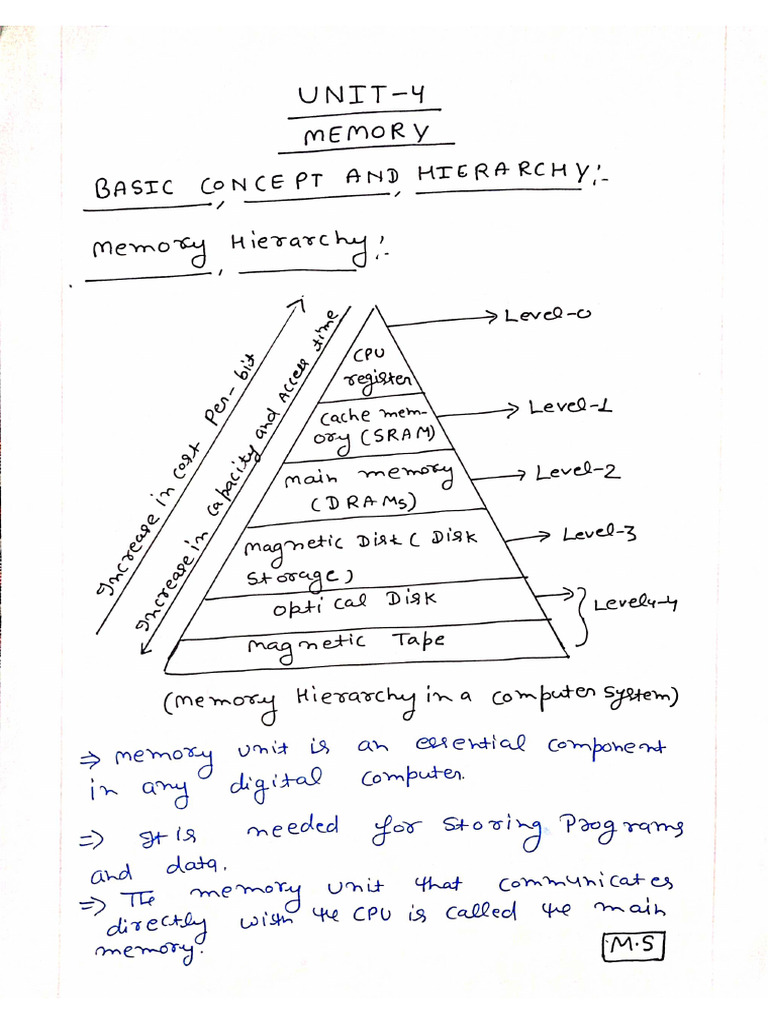 UNIT-4
MEMORY
BASIC CONCEPT AND HIERARCHY:-
Memory Hierarchy:-
Increase in cost Per-bit
Increase in capacity and Access time
CPU
register
Level-0
Cache mem-
ory (SRAM)
Level-1
main memory
(DRAMs)
Level-2
Magnetic Disk (Disk
Storage)
Level-3
Optical Disk
Level-4
Magnetic Tape
(Memory Hierarchy in a computer System)
⇒ Memory unit is an essential component
in any digital computer.
⇒ It is needed for storing Programs
and data.
⇒ The memory unit that communicates
directly with the CPU is called the main
memory.
M.S